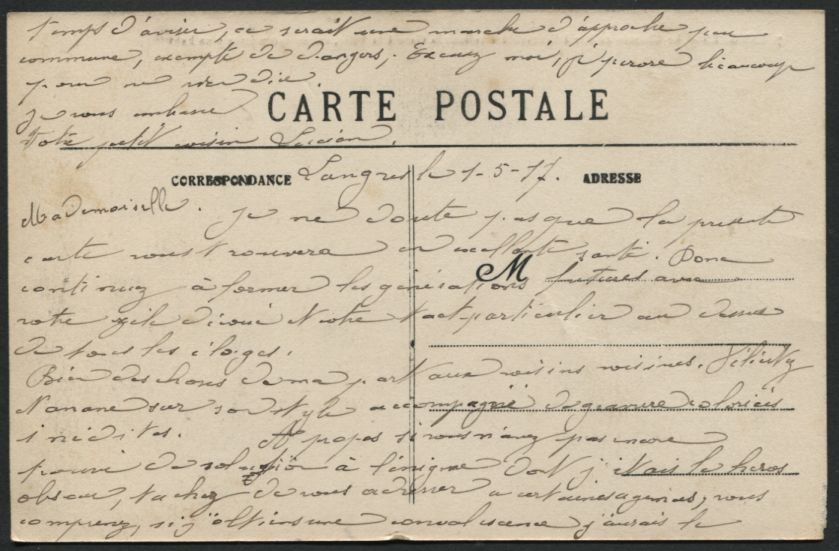 temps d'aviser, ce serait une marche d'approche peu
commune, exempte de dangers, Excusez moi, je pérore beaucoup
pour ne rien dire.
je vous embrasse
CARTE POSTALE
Votre petit voisin Lucien.
CORRESPONDANCE Langres le 1-5-17. ADRESSE
Mademoiselle. Je ne doute pas que la présente
carte vous trouvera en excellente santé. Donc
M
continuez à former les générations futures avec
votre zèle dévoué et votre tact particulier au dessus
de tous les éloges.
Bien des choses de ma part aux voisins voisines. Félicitez
Nanane sur son style accompagné de gravures coloriées
inédites. A propos si vous n'avez pas encore
trouvé de solution à l'énigme dont j'étais le héros
obscur, tachez de vous adresser à certaines agences, vous
comprenez, si j'obtiens une convalescence j'aurais le